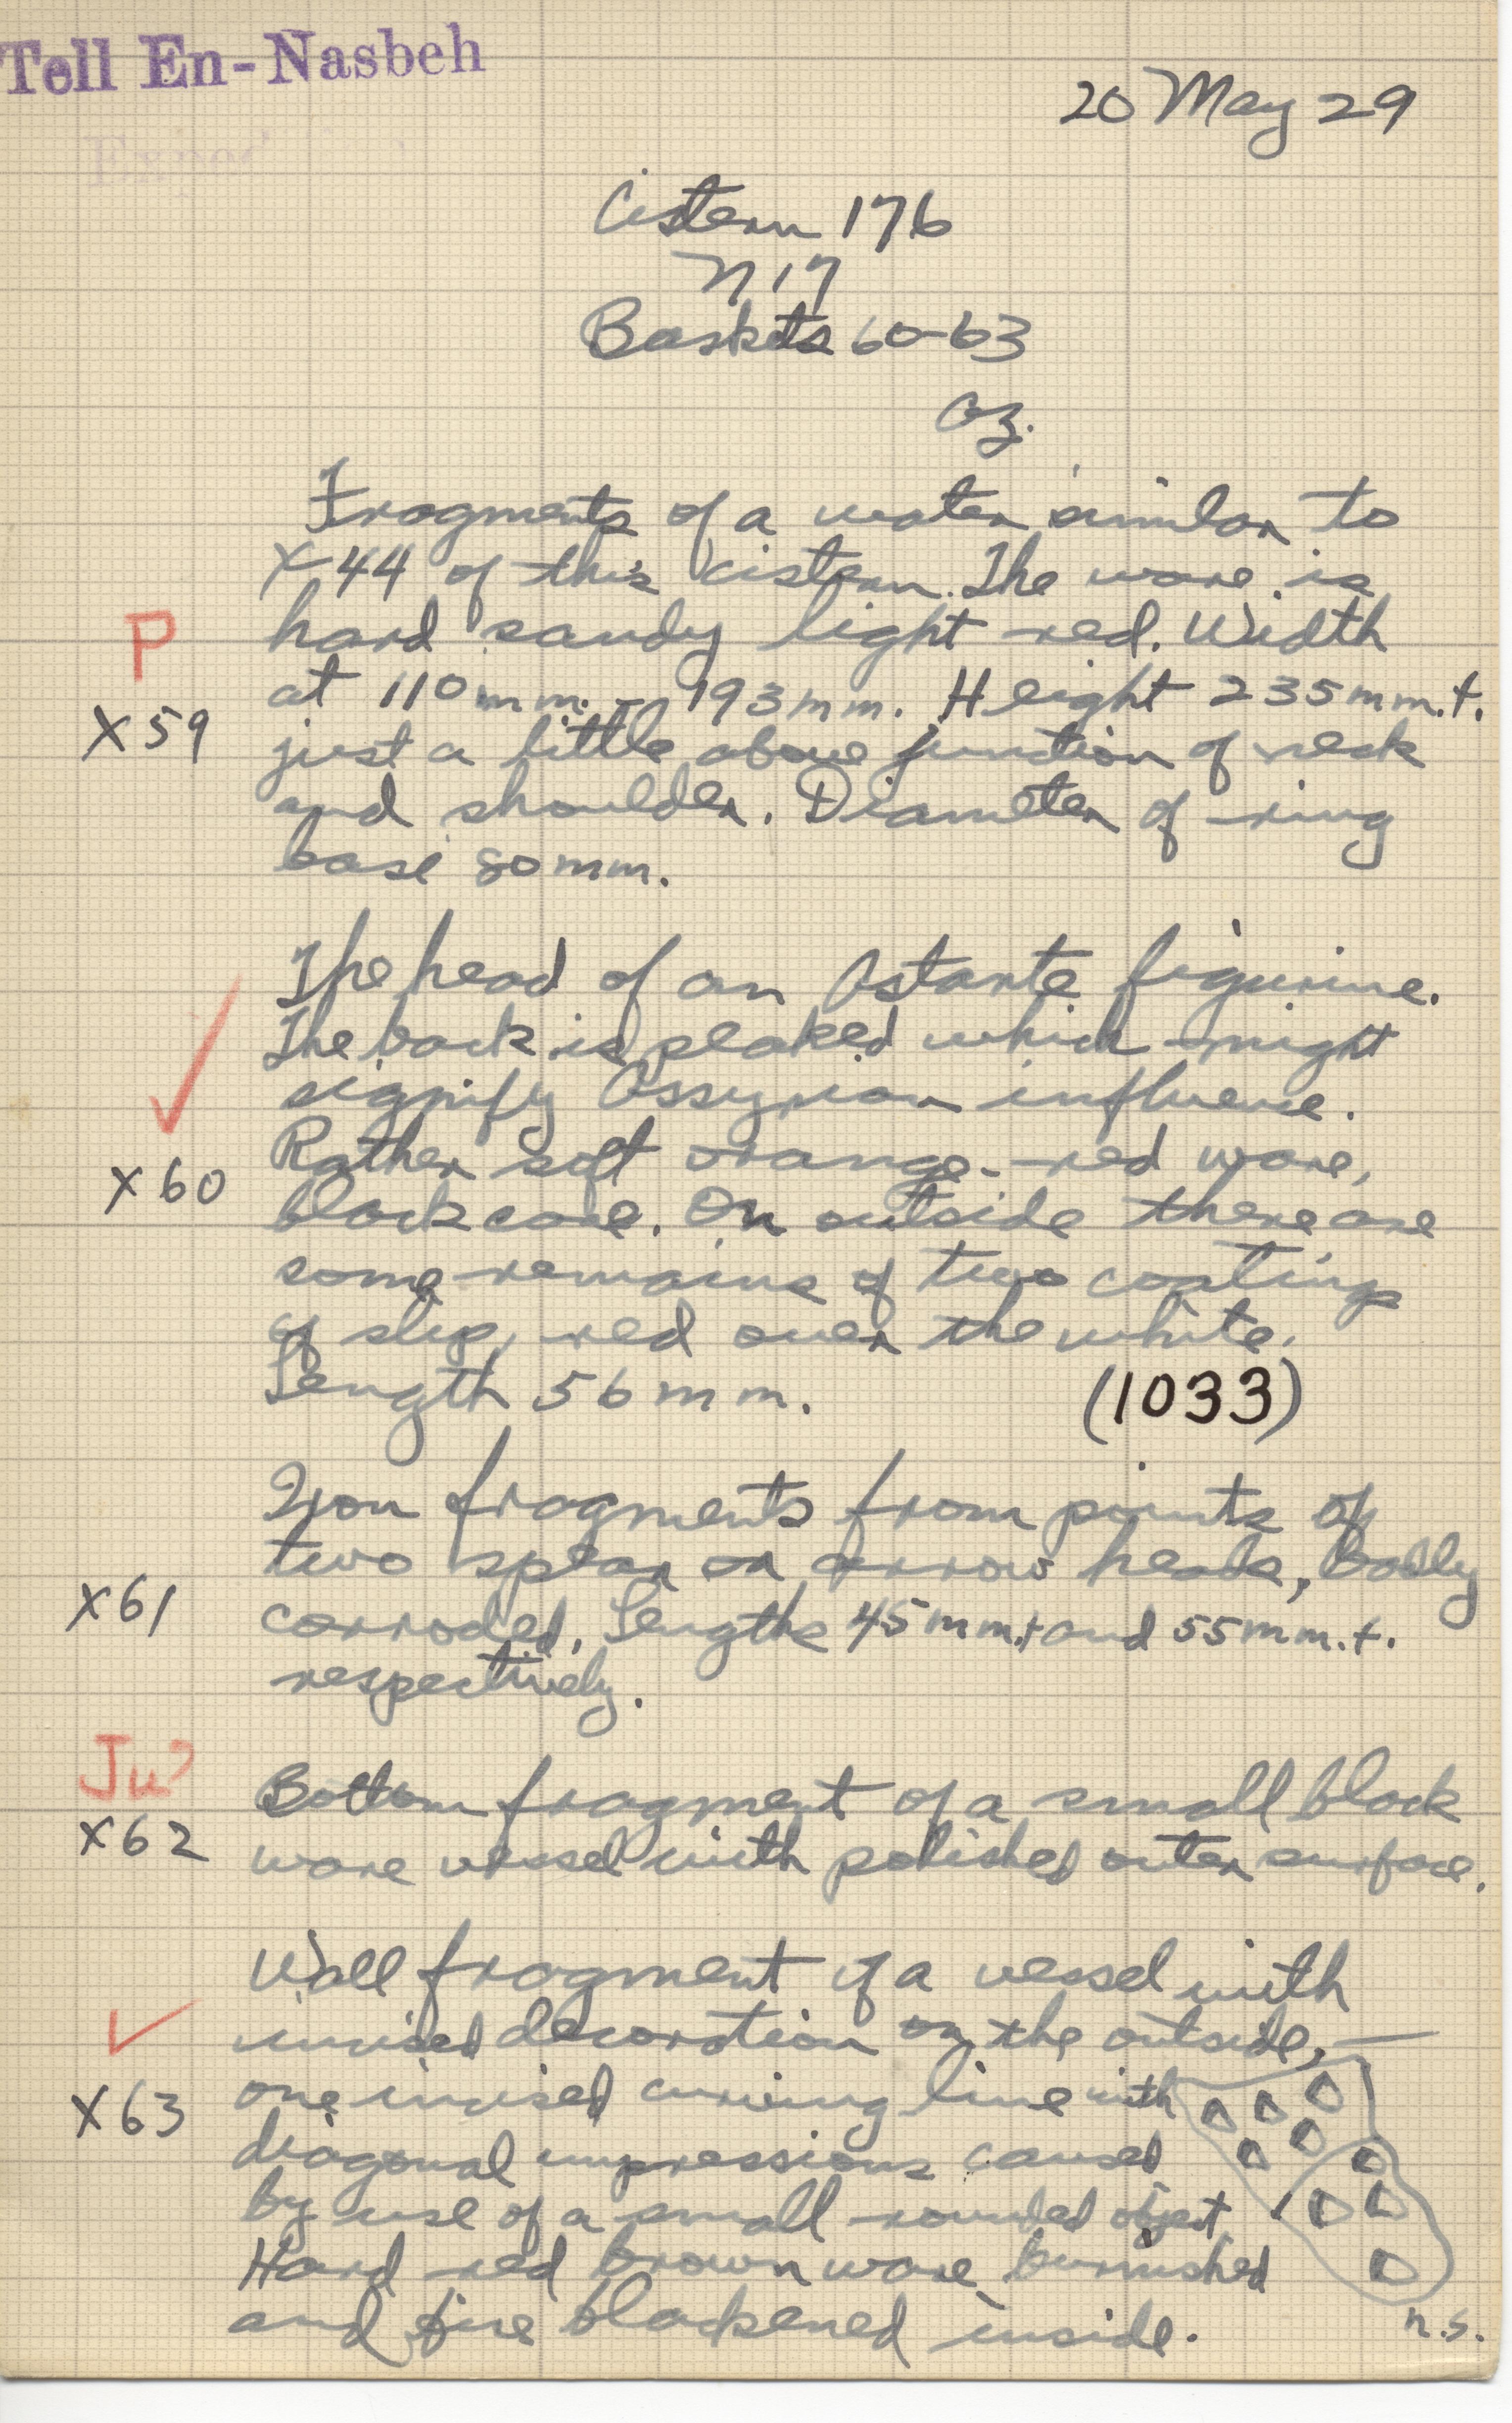 Tell En-Nasbeh
20 May 29
Cistern 176
N 17
Baskets 60-63
Fragments of a water similar to
X 44 of this cistern. The ware is
hard sandy light red. Width
at 110 mm. - 193 mm. Height 235 mm. +.
just a little above junction of neck
and shoulder. Diameter of ring
base 80 mm.
P
X 59
The head of an Astarte figurine.
The back is peaked which might
signify Assyrian influence.
Rather soft orange-red ware,
black core. On outside there are
some remains of two coatings
of slip, red over the white.
Length 56 mm. (1033)
X 60
Iron fragments from points of
two spear or arrow heads, Badly
corroded. Lengths 45 mm.+ and 55 mm.+.
respectively.
X 61
Ju?
X 62
Bottom fragment of a small black
ware vessel with polished outer surface.
Wall fragment of a vessel with
incised decoration on the outside, —
one incised curving line with
diagonal impressions caused
by use of a small rounded object
Hard red brown ware burnished
and fire blackened inside.
X 63
n.s.